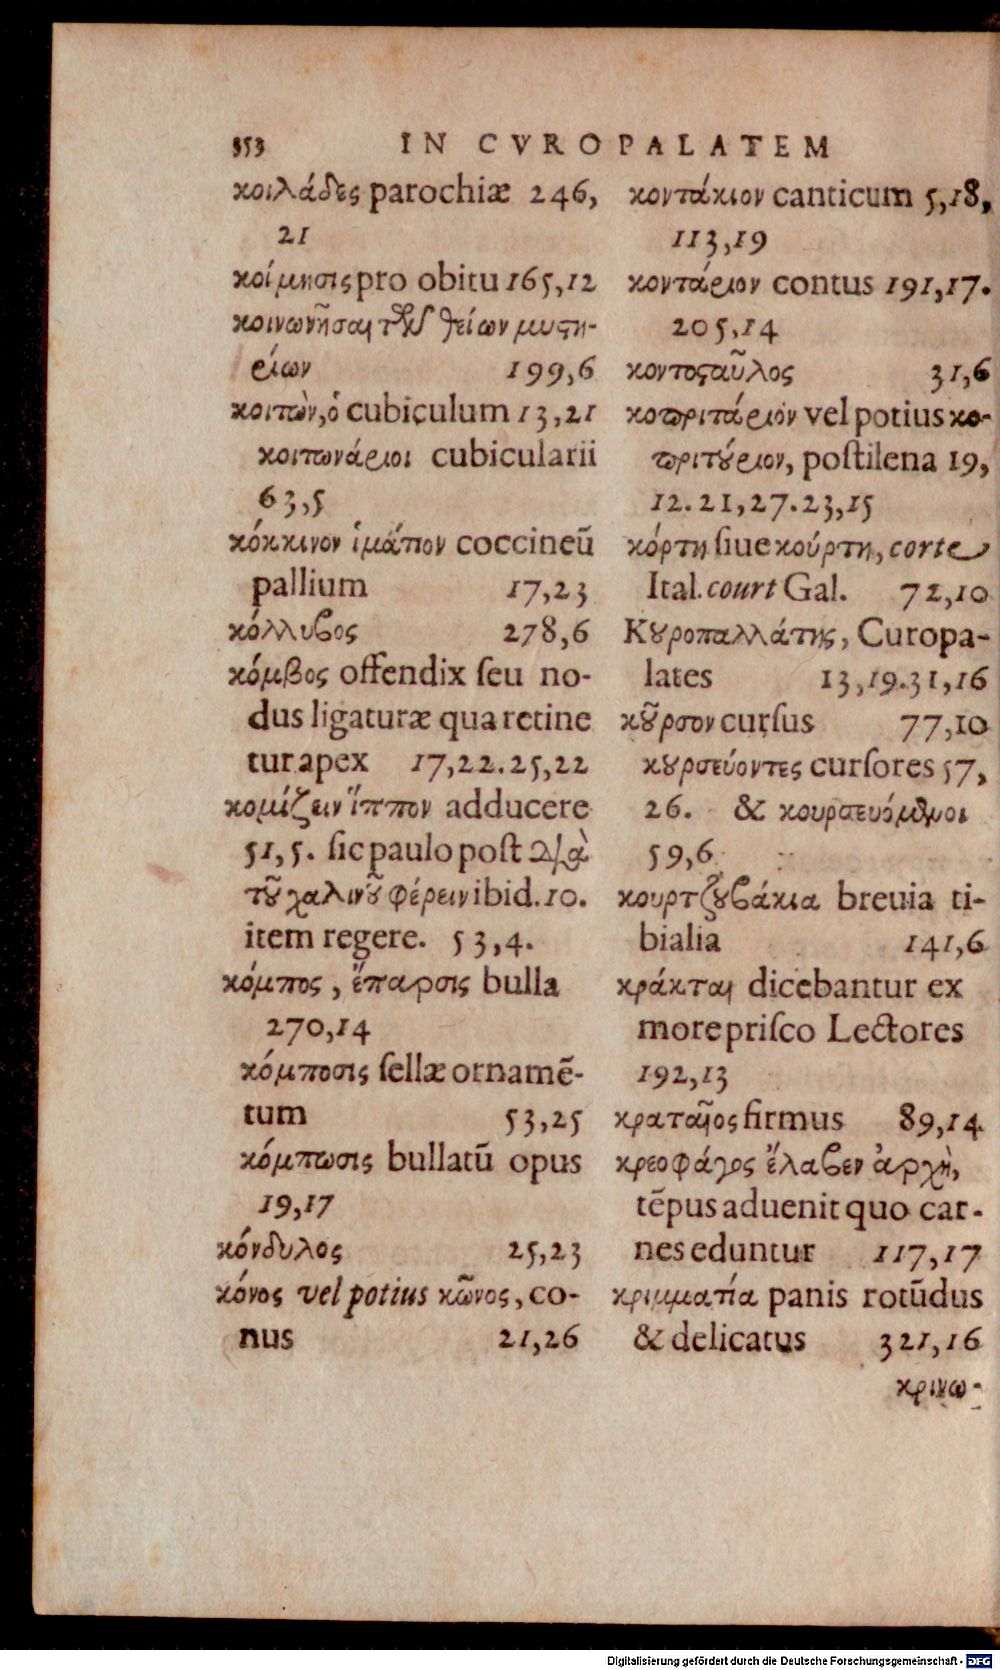 353 IN CVROPALATEM
κοιλάδες parochiæ 246,
21
κοίμησις pro obitu 165,12
κοινωνῆσαι τῶν θείων μυστη-
ρίων 199,6
κοιτὼν,ὁ cubiculum 13,21
κοιτωνάριοι cubicularii
63,5
κόκκινον ἱμάτιον coccineū
pallium 17,23
κόλλυβος 278,6
κόμβος offendix ſeu no-
dus ligaturæ qua retine
tur apex 17,22.25,22
κομίζειν ἵππον adducere
51,5. ſic paulo poſt διὰ
τοῦ χαλινοῦ φέρειν ibid.10.
item regere. 53,4.
κόμπος, ἔπαρσις bulla
270,14
κόμποσις ſellæ ornamē-
tum 53,25
κόμπωσις bullatū opus
19,17
κόνδυλος 25,23
κόνος vel potius κῶνος, co-
nus 21,26
κοντάκιον canticum 5,18,
113,19
κοντάριον contus 191,17.
205,14
κοντοσταῦλος 31,6
κοπριτάριον vel potius κο-
πριτούριον, poſtilena 19,
12.21,27.23,15
κόρτη ſiue κούρτη, corte
Ital. court Gal. 72,10
Κουροπαλλάτης, Curopa-
lates 13,19.31,16
κοῦρσον curſus 77,10
κουρσεύοντες curſores 57,
26. & κουρσευόμενοι
59,6
κουρτζουβάκια breuia ti-
bialia 141,6
κράκται dicebantur ex
more priſco Lectores
192,13
κραταῖος firmus 89,14
κρεοφάγος ἔλαβεν ἀρχὴ,
tēpus aduenit quo car-
nes eduntur 117,17
κριμματία panis rotūdus
& delicatus 321,16
κρινω-
Digitalisierung gefördert durch die Deutsche Forschungsgemeinschaft - DFG